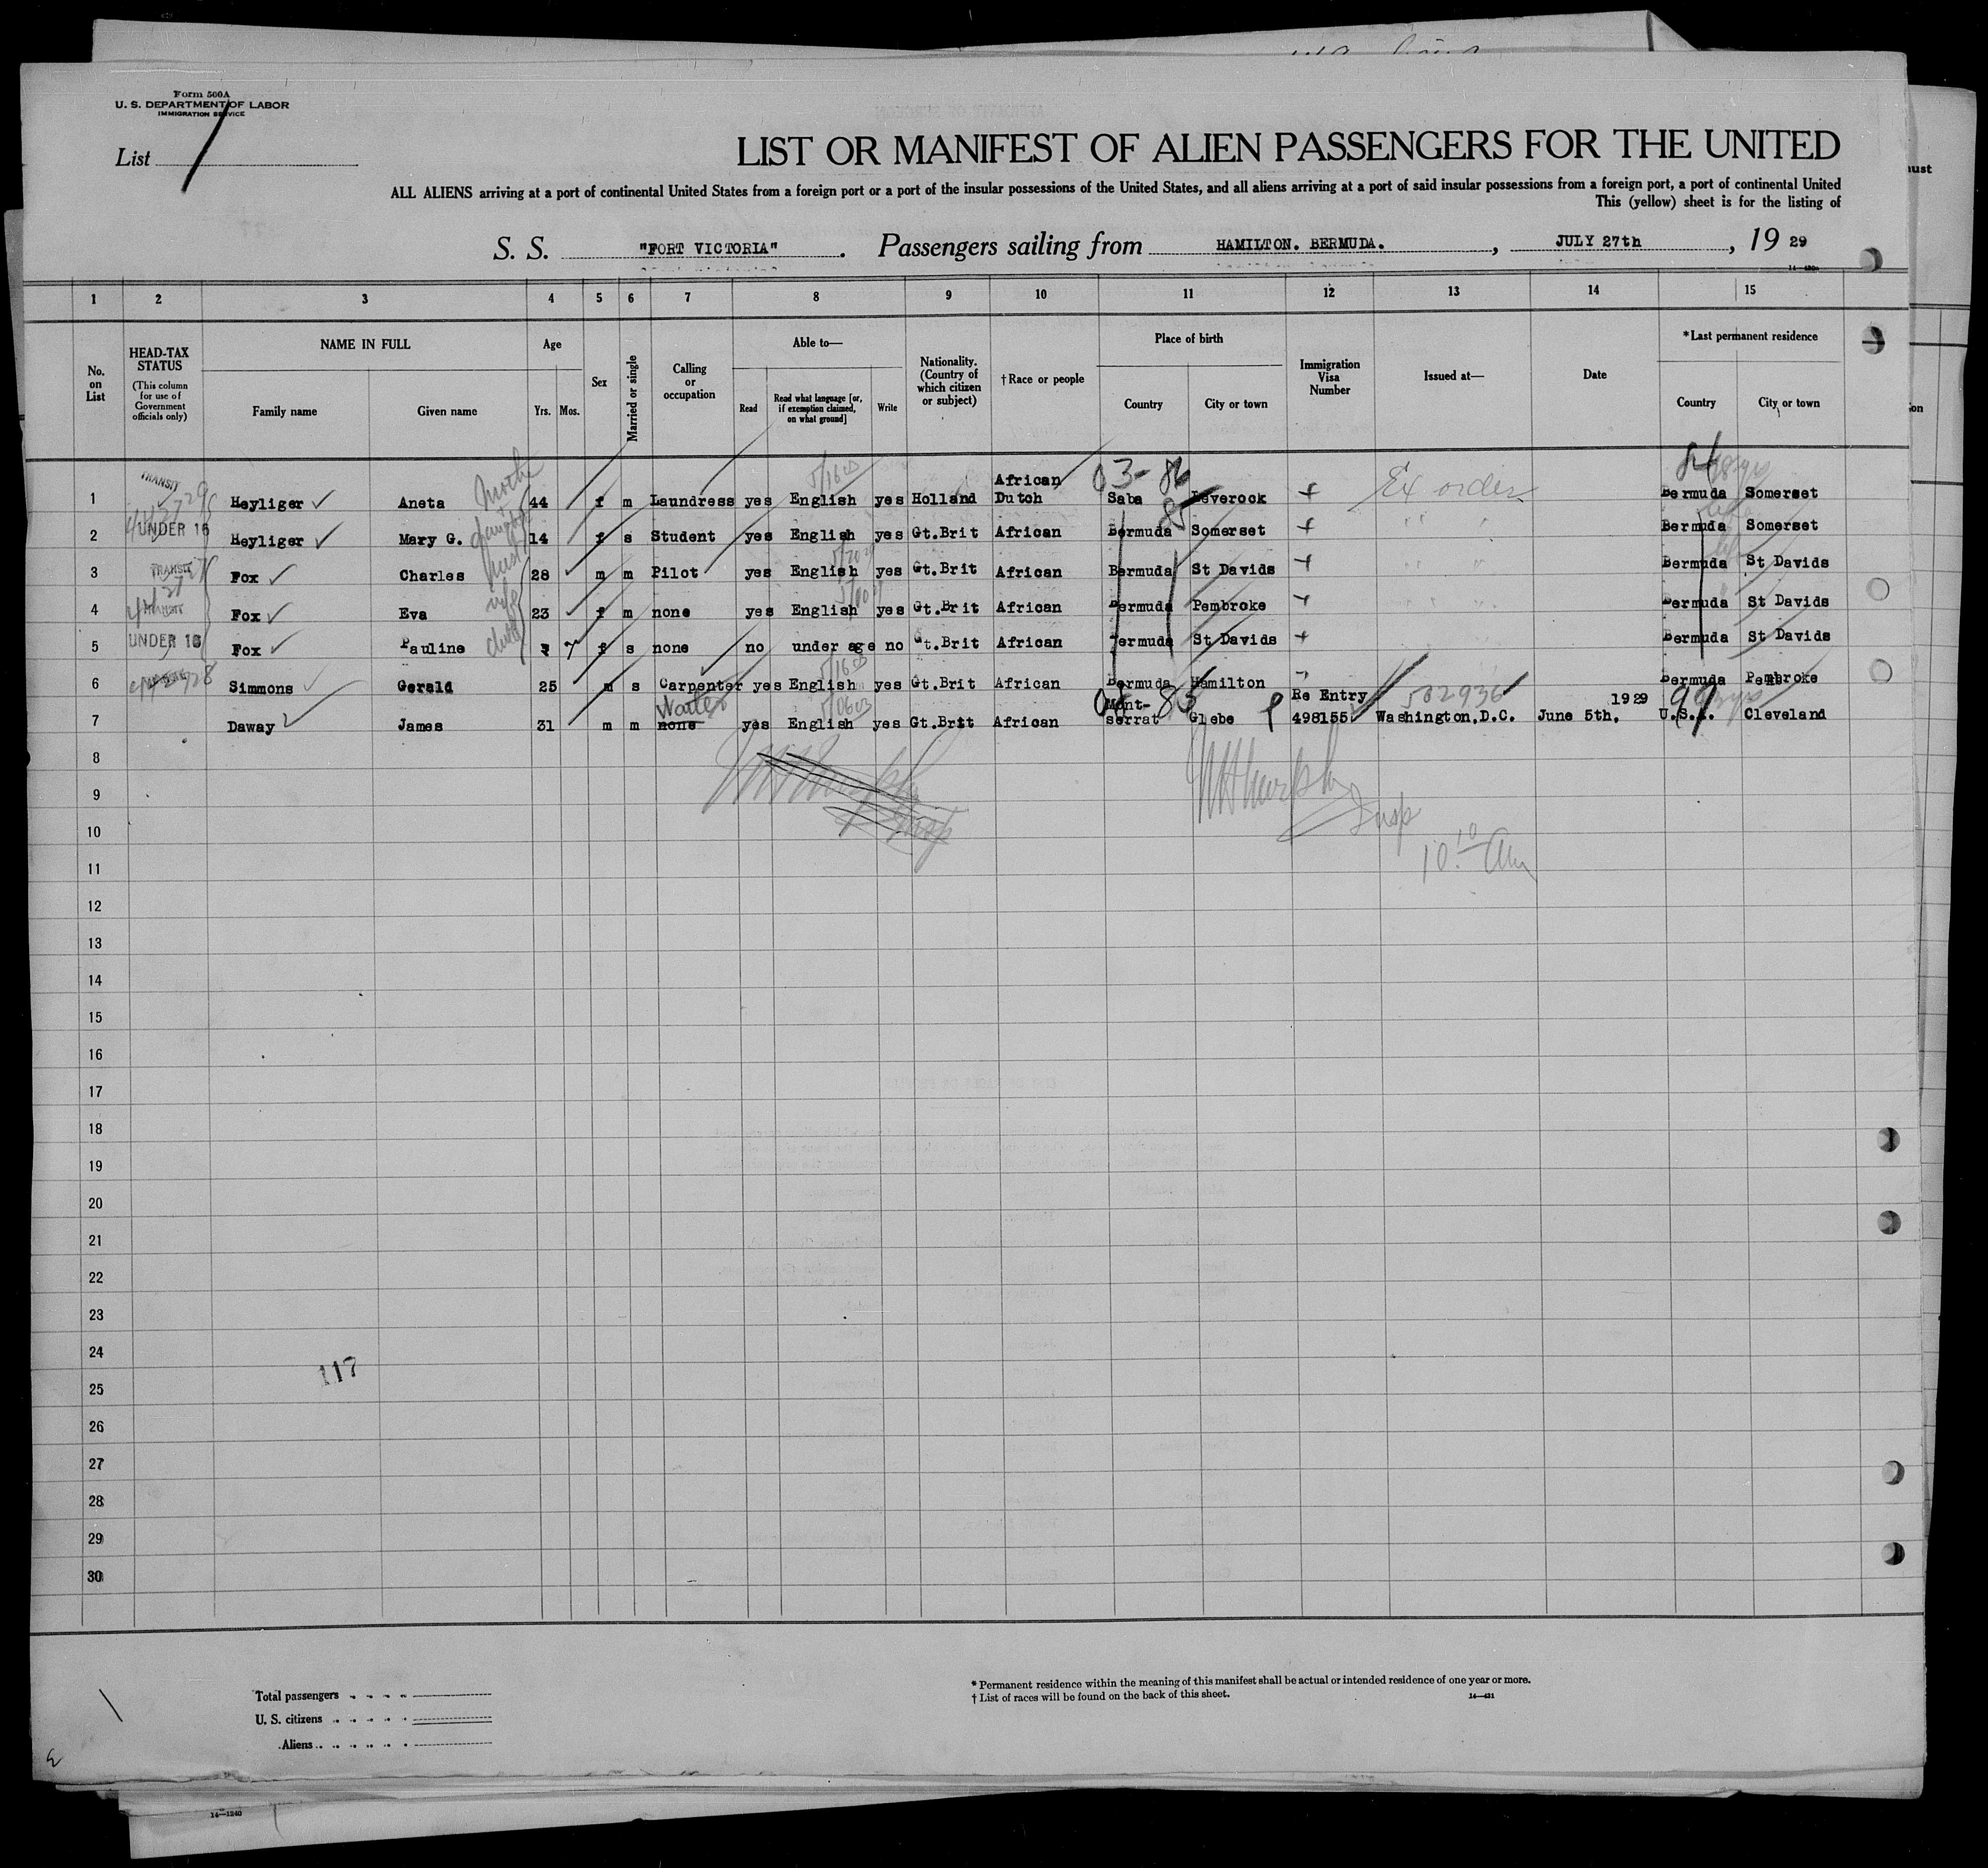 Form 500A
U. S. DEPARTMENT OF LABOR
IMMIGRATION SERVICE
List 1
LIST OR MANIFEST OF ALIEN PASSENGERS FOR THE UNITED
ALL ALIENS arriving at a port of continental United States from a foreign port or a port of the insular possessions of the United States, and all aliens arriving at a port of said insular possessions from a foreign port, a port of continental United
This (yellow) sheet is for the listing of
S. S. "FORT VICTORIA". Passengers sailing from HAMILTON. BERMUDA. , JULY 27th , 19 29
1 2 3 4 5 6 7 8 9 10 11 12 13 14 15
No. on List
HEAD-TAX STATUS (This column for use of Government officials only)
NAME IN FULL
Family name Given name
Age
Yrs. Mos.
Sex
Married or single
Calling or occupation
Able to—
Read Read what language [or, if exemption claimed, on what ground] Write
Nationality. (Country of which citizen or subject)
† Race or people
Place of birth
Country City or town
Immigration Visa Number
Issued at—
Date
*Last permanent residence
Country City or town
1 TRANSIT Heyliger Aneta 44 f m Laundress yes English yes Holland African Dutch Saba Leverock Ex order Bermuda Somerset
2 UNDER 16 Heyliger Mary G. 14 f s Student yes English yes Gt.Brit African Bermuda Somerset Bermuda Somerset
3 TRANSIT Fox Charles 28 m m Pilot yes English yes Gt.Brit African Bermuda St Davids Bermuda St Davids
4 TRANSIT Fox Eva wife 23 f m none yes English yes Gt.Brit African Bermuda Pembroke Bermuda St Davids
5 UNDER 16 Fox Pauline child 7 f s none no under age no Gt.Brit African Bermuda St Davids Bermuda St Davids
6 Simmons Gerald 25 m s Carpenter yes English yes Gt.Brit African Bermuda Hamilton Bermuda Pembroke
7 Daway James 31 m m none Waiter yes English yes Gt.Brit African Mont-serrat Glebe Re Entry 498155 502936 Washington,D.C. June 5th, 1929 U.S.A. Cleveland
8
9
10
10 10 Am
11
12
13
14
15
16
17
18
19
20
21
22
23
24
117
25
26
27
28
29
30
Total passengers
U. S. citizens
Aliens
* Permanent residence within the meaning of this manifest shall be actual or intended residence of one year or more.
† List of races will be found on the back of this sheet.
14—431
14—1240